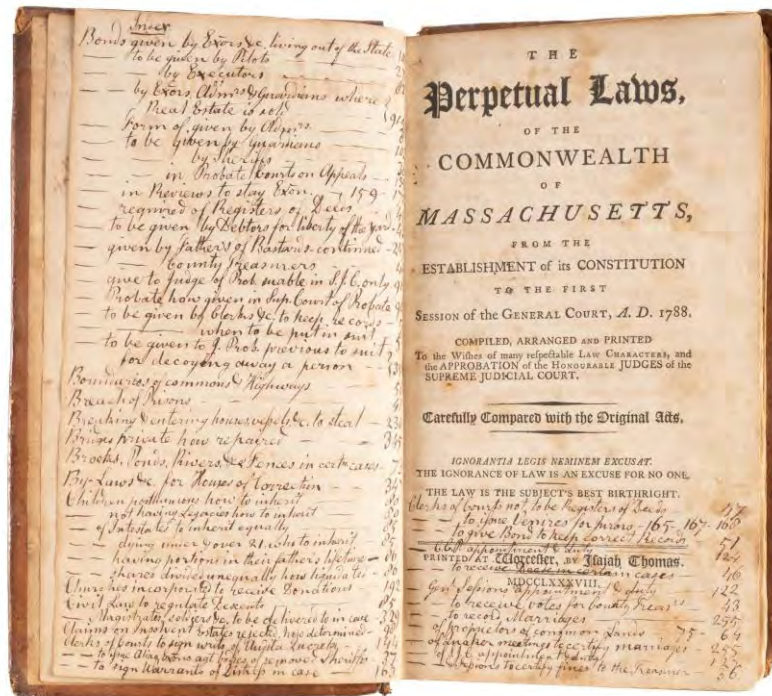 Index
Bonds given by Exors &c. living out of the State
— to be given by Pilots
— — by Executors
— by Exors, Admrs & Guardians where
Real Estate is sold
— Form of, given by Admrs.
— to be given by Guardians
— — by Sheriffs
— — in Probate Courts on Appeals
— in Reviews to stay Exon. — 159
— required of Registers of Deeds
— to be given by Debtors for liberty of the yard
— given by Fathers of Bastards continued
— County Treasurers
— give to Judge of Prob. suable in S.J.C. only
— Probate how given in Sup. Court of Probate
— to be given by Clerks &c. to keep records
— when to be put in suit
— to be given to J. Prob. previous to suit
— for decoying away a person
Boundaries of commons & Highways
Breach of Prisons
Breaking & entering houses vessels &c. to steal
Bridges private how repaired
Brooks, Ponds, Rivers, &c Fences in certn cases
By-Laws &c. for Houses of Correction
Children posthumous how to inherit
— not having Legacies how to inherit
— of Intestates to inherit equally
— dying under & over 21 who to inherit
— having portions in their fathers lifetime
— shares divided unequally how liquidated
Churches incorporated to receive Donations 192
Civil Law to regulate Descents
— Magistrates, soldiers &c. to be delivered to in case 329
Claims on Insolvent Estates rejected, how determined
Clerks of Courts to sign writs of
— to issue Alias Exons agt bodies of removed Sheriffs
— to sign Warrants of Distress in case
THE
Perpetual Laws,
OF THE
COMMONWEALTH
OF
MASSACHUSETTS,
FROM THE
ESTABLISHMENT of its CONSTITUTION
TO THE FIRST
SESSION of the GENERAL COURT, A. D. 1788.
COMPILED, ARRANGED AND PRINTED
To the Wishes of many respectable LAW CHARACTERS, and
the APPROBATION of the HONOURABLE JUDGES of the
SUPREME JUDICIAL COURT.
Carefully Compared with the Original Acts.
IGNORANTIA LEGIS NEMINEM EXCUSAT.
THE IGNORANCE OF LAW IS AN EXCUSE FOR NO ONE.
THE LAW IS THE SUBJECT'S BEST BIRTHRIGHT.
Clerks of Courts not to be Registers of Deeds 47
— to issue Venires for Jurors — 165 - 167 - 168
— to give Bond to keep correct Records 51
— C.C.P. appointment & duty 124
PRINTED AT Worcester, BY Isaiah Thomas.
— to receive in certain cases 46
MDCCLXXXVIII.
— Genl Sessions appointment & duty — 122
— to receive votes for County Treasr — 43
— to record Marriages — 255
— of Proprietors of common Lands 75 - 64
— of Quaker meetings to certify marriages — 255
— of S.J.C. appointment & duty
— Sessions to certify fines to the Treasurer — 56